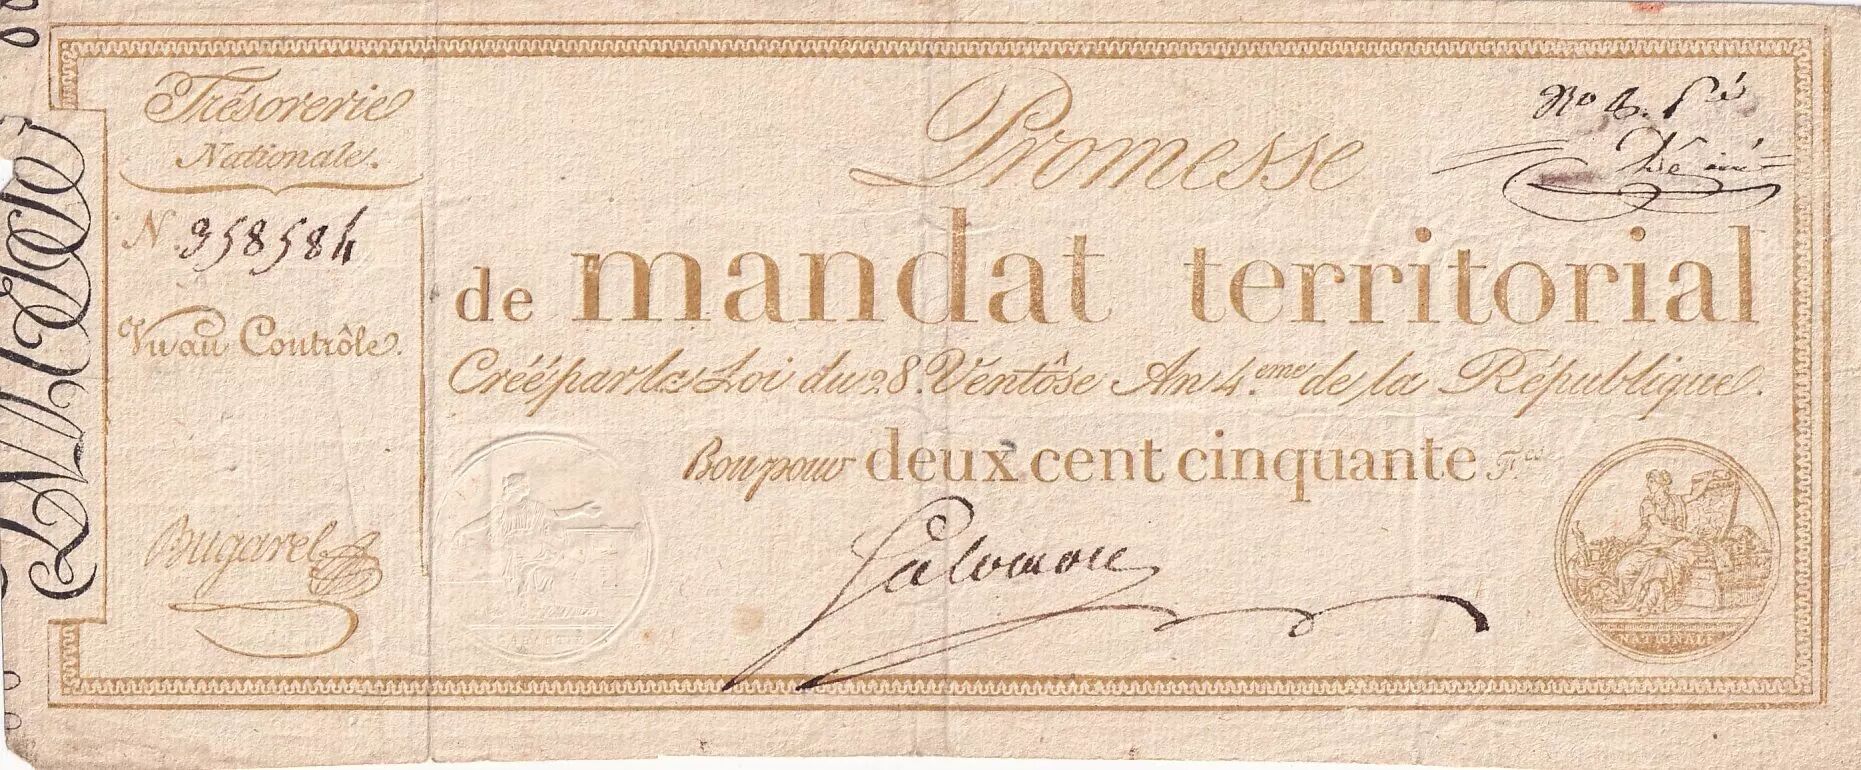 Trésorerie
Nationale.
N. 958584
Vu au Contrôle.
Bugarel
Promesse
de mandat territorial
Créé par la Loi du 28. Ventôse An 4.eme de la République.
Bon pour deux cent cinquante F.cs
NATIONALE